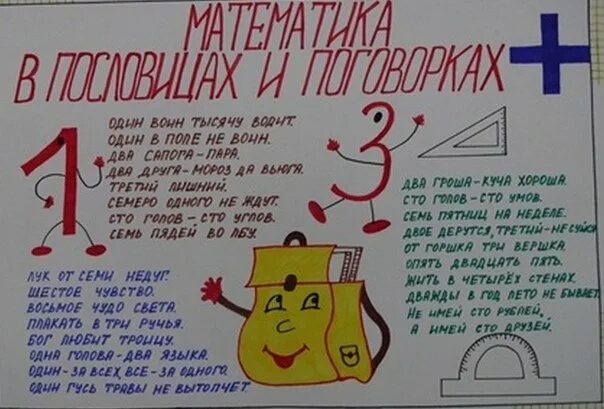 МАТЕМАТИКА
В ПОСЛОВИЦАХ И ПОГОВОРКАХ
ОДИН ВОИН ТЫСЯЧУ ВОДИТ.
ОДИН В ПОЛЕ НЕ ВОИН.
ДВА САПОГА-ПАРА.
ДВА ДРУГА-МОРОЗ ДА ВЬЮГА.
ТРЕТИЙ ЛИШНИЙ.
СЕМЕРО ОДНОГО НЕ ЖДУТ.
СТО ГОЛОВ-СТО УМОВ.
СЕМЬ ПЯДЕЙ ВО ЛБУ.
1
3
ДВА ГРОША-КУЧА ХОРОША.
СТО ГОЛОВ-СТО УМОВ.
СЕМЬ ПЯТНИЦ НА НЕДЕЛЕ.
ДВОЕ ДЕРУТСЯ, ТРЕТИЙ-НЕ СУЙСЯ
ОТ ГОРШКА ТРИ ВЕРШКА.
ОПЯТЬ ДВАДЦАТЬ ПЯТЬ.
ЖИТЬ В ЧЕТЫРЁХ СТЕНАХ.
ДВАЖДЫ В ГОД ЛЕТО НЕ БЫВАЕТ.
НЕ ИМЕЙ СТО РУБЛЕЙ,
А ИМЕЙ СТО ДРУЗЕЙ.
ЛУК ОТ СЕМИ НЕДУГ.
ШЕСТОЕ ЧУВСТВО.
ВОСЬМОЕ ЧУДО СВЕТА.
ПЛАКАТЬ В ТРИ РУЧЬЯ.
БОГ ЛЮБИТ ТРОИЦУ.
ОДНА ГОЛОВА-ДВА ЯЗЫКА.
ОДИН-ЗА ВСЕХ, ВСЕ-ЗА ОДНОГО.
ОДИН ГУСЬ ТРАВЫ НЕ ВЫТОПЧЕТ.